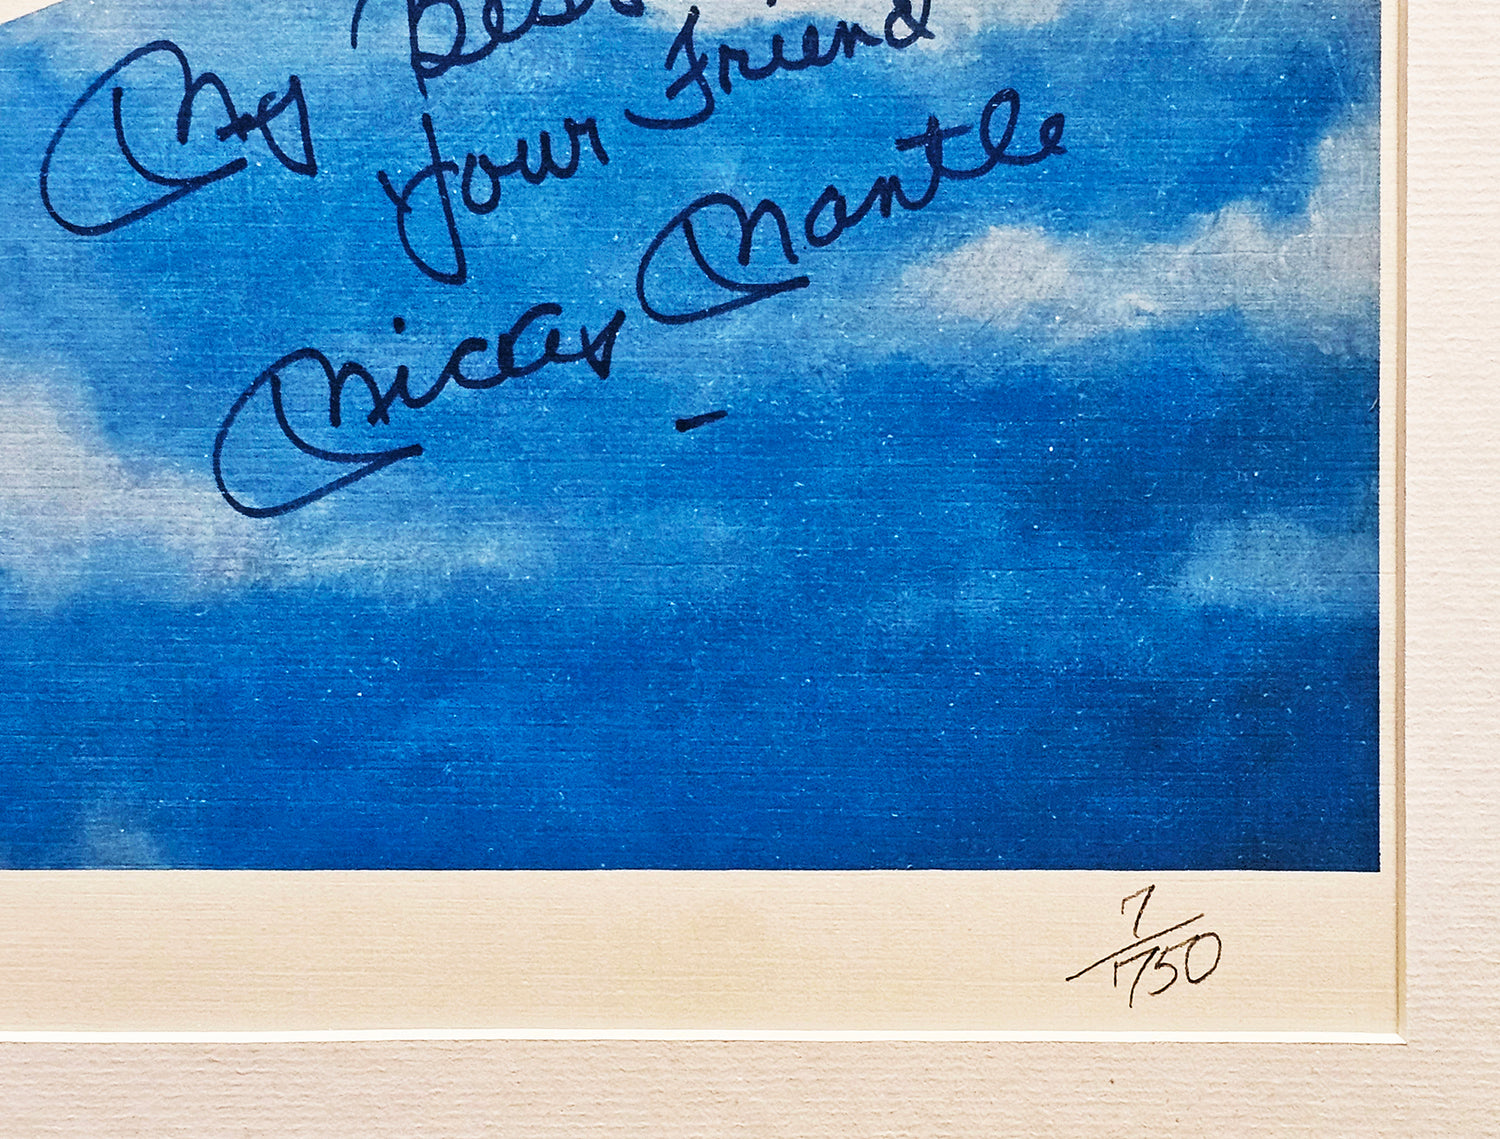 My Best
your Friend
Mickey Mantle
-
7/750